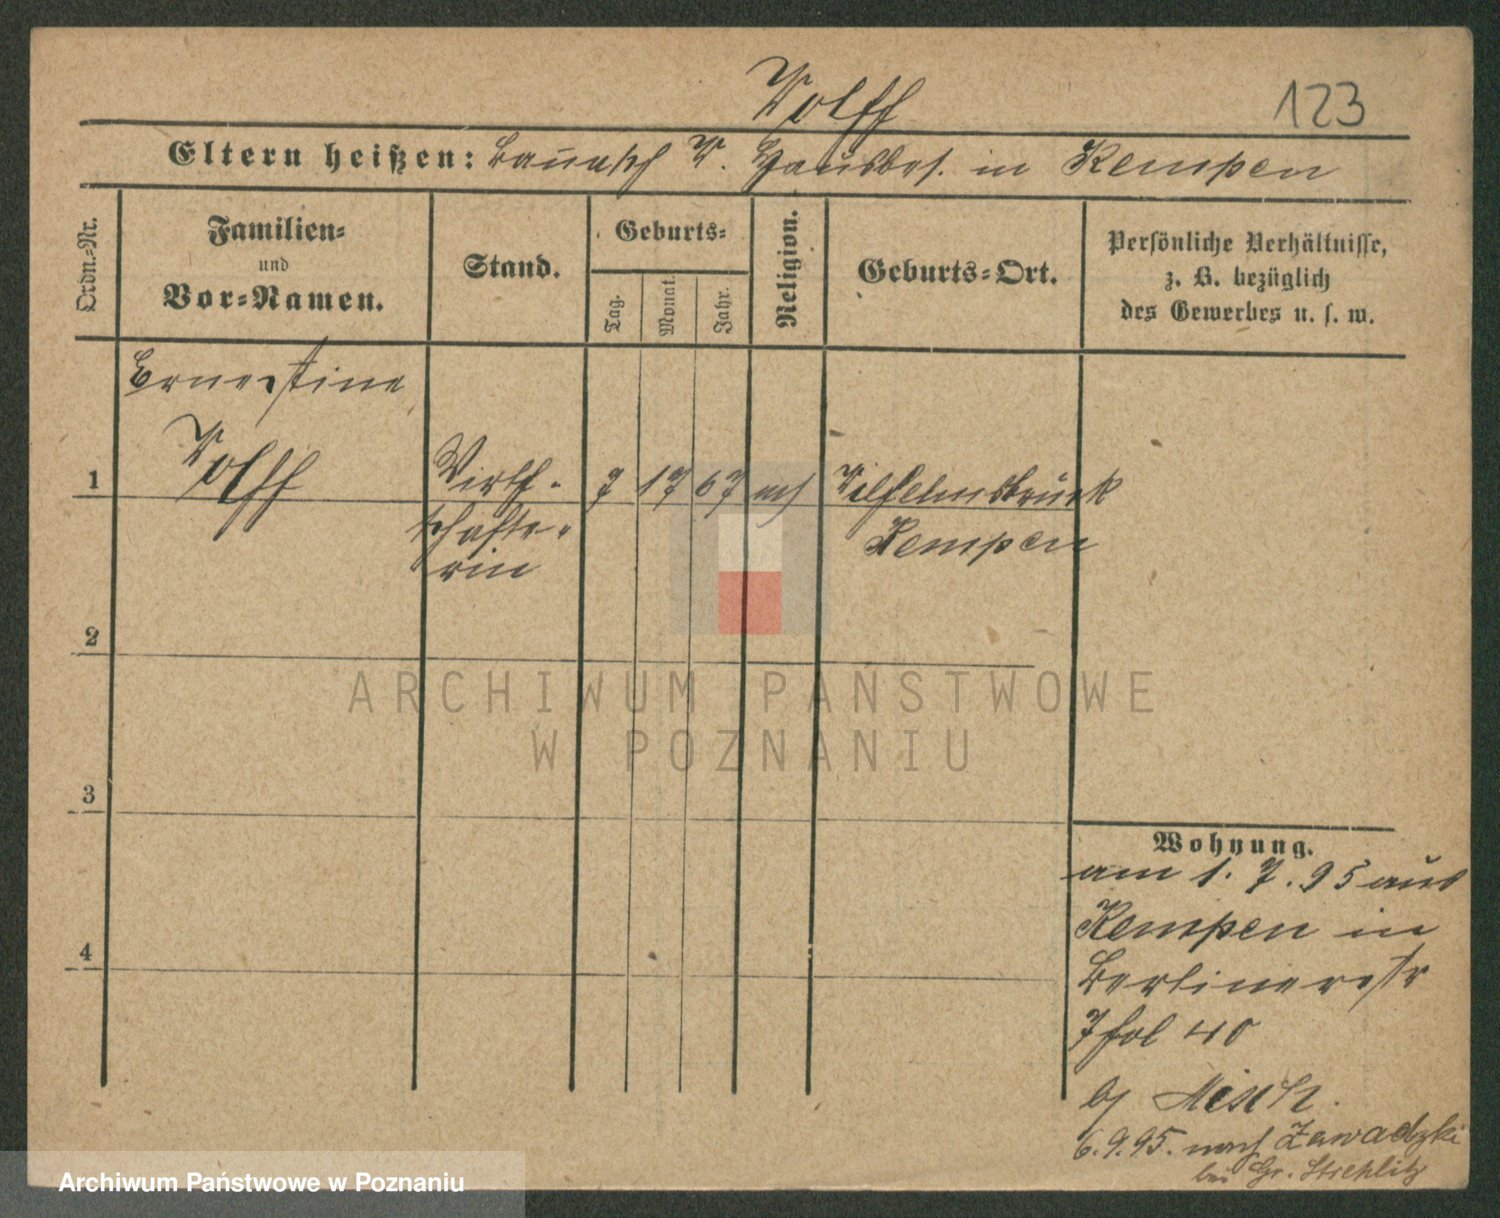 Wolff
123
Eltern heißen: W. Hausbes. in Kempen
Ordn.-Nr.
Familien-
und
Vor-Namen.
Stand.
Geburts-
Tag.
Monat.
Jahr.
Religion.
Geburts-Ort.
Persönliche Verhältnisse,
z. B. bezüglich
des Gewerbes u. s. w.
Ernestine
Wolff
1
Wirth-
schafte-
rin
7
17
67
Wilhelmsbrück
Kempen
2
3
4
Wohnung.
am 1. 7. 95 aus
Kempen in
Berlinerstr
7 fol 40
bj
6.9.95. nach Zawadzki
bei Gr. Strehlitz
ARCHIWUM PAŃSTWOWE
W POZNANIU
Archiwum Państwowe w Poznaniu